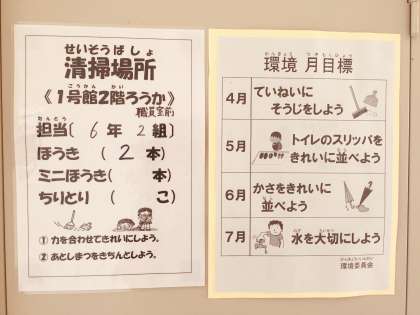 せいそうばしょ
清掃場所
こうかん かい
《1号館2階ろうか》
職員室前
たんとう
担当〔 6 年 2 組〕
ほうき ( 2 本)
ミニほうき( 本)
ちりとり ( こ)
① 力を合わせてきれいにしよう。
② あとしまつをきちんとしよう。
かんきょう つきもくひょう
環境 月目標
4月 ていねいに
そうじをしよう
5月 トイレのスリッパを
きれいに並べよう
6月 かさをきれいに
並べよう
7月 水を大切にしよう
環境委員会